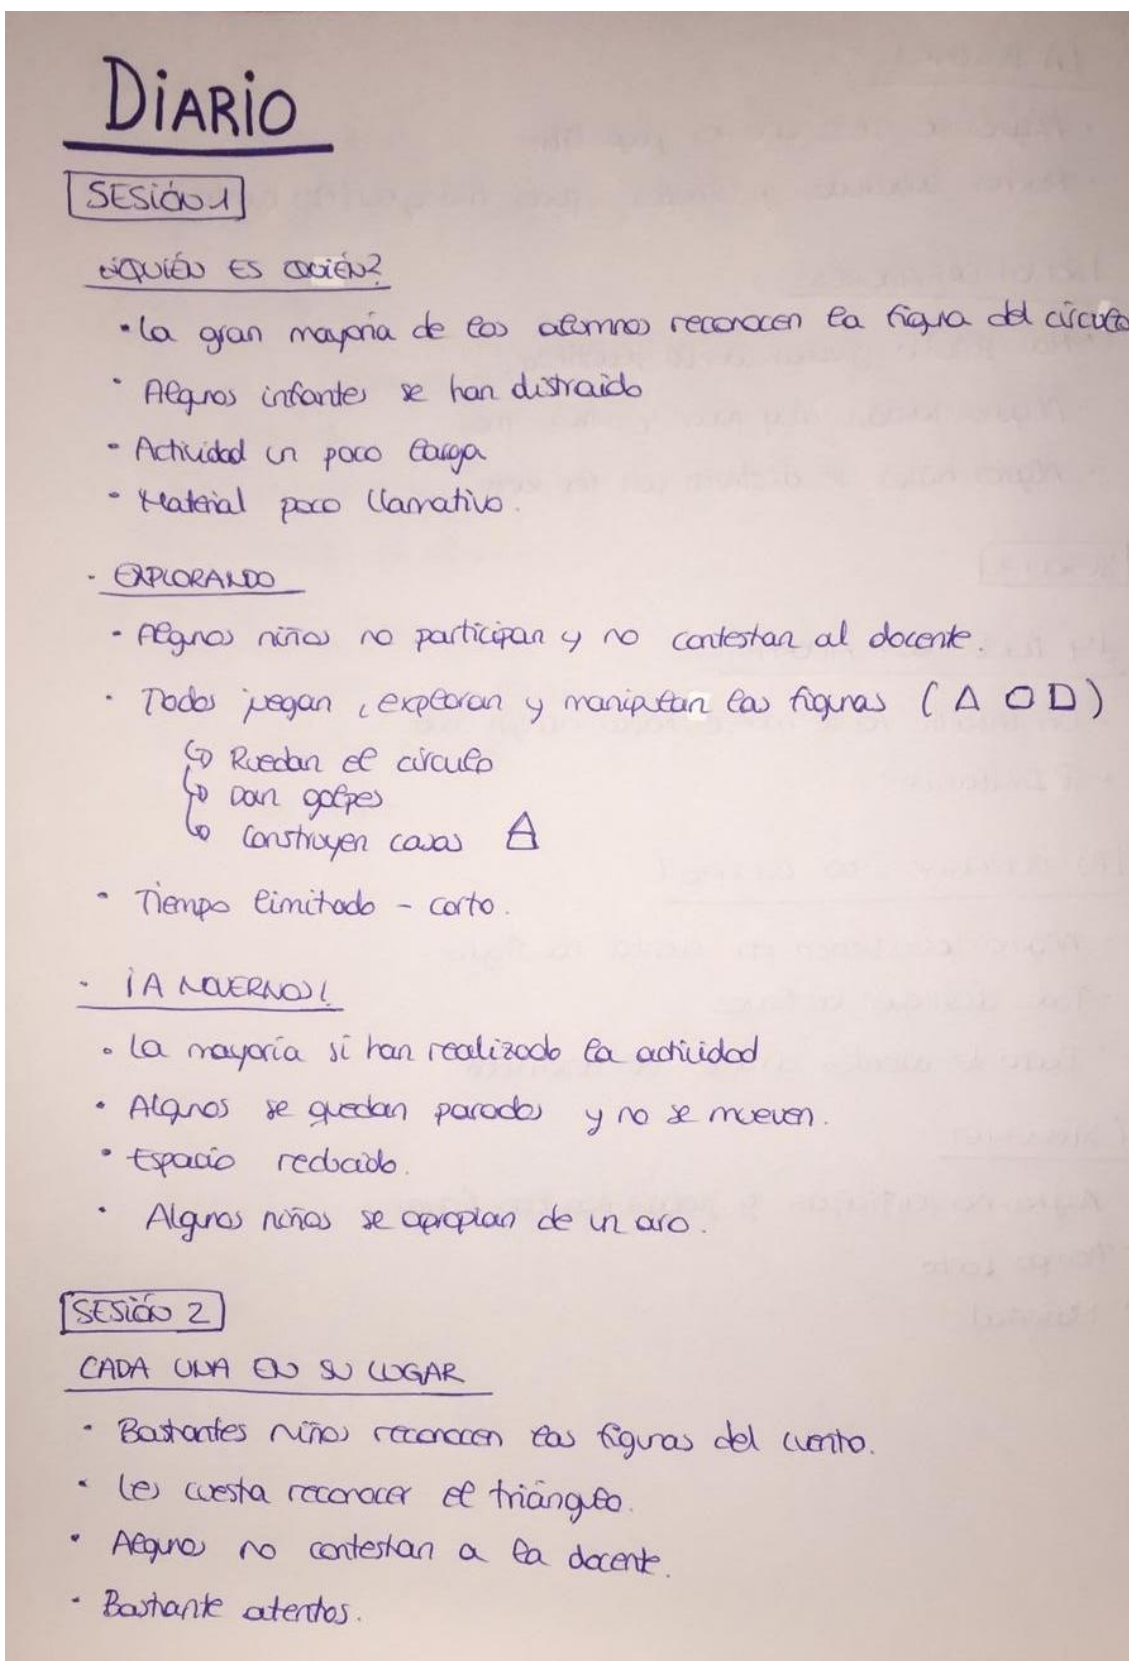 DiARiO
SESiÓN 1
¿QUIÉN ES QUIÉN?
• La gran mayoría de los alumnos reconocen la figura del círculo
• Algunos infantes se han distraido
• Actividad un poco larga
• Material poco llamativo.
- EXPLORANDO
• Algunos niños no participan y no contestan al docente.
• Todos juegan, exploran y manipulan las figuras ( △ ○ □ )
↳ Ruedan el círculo
↳ Dan golpes
↳ Construyen casas
• Tiempo limitado - corto.
- ¡A MOVERNOS!
• La mayoría si han realizado la actividad
• Algunos se quedan parados y no se mueven.
• Espacio reducido.
• Algunos niños se apropian de un aro.
SESiÓN 2
CADA UNA EN SU LUGAR
• Bastantes niños reconocen las figuras del cuento.
• Les cuesta reconocer el triángulo.
• Algunos no contestan a la docente.
• Bastante atentos.